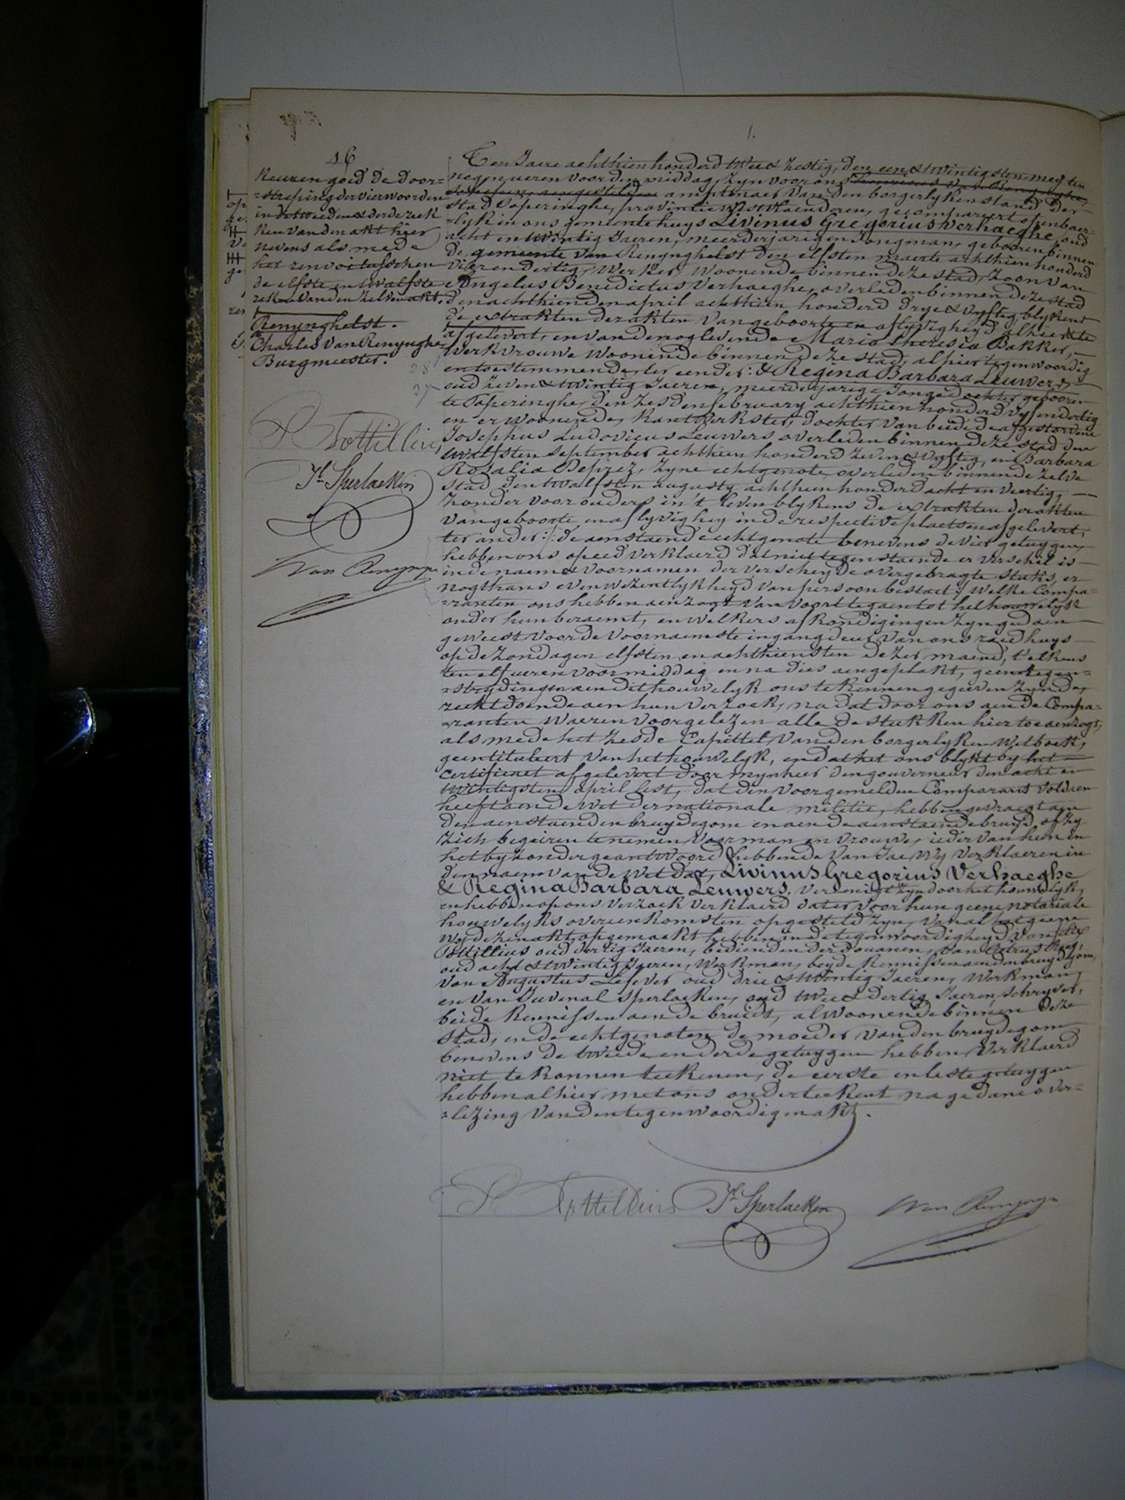 1.
46
Keuren goed de door-
streping der vier woorden
in
ken van den akt hier
nevens als mede
het renvooi tusschen
de elfste en twalfste
reken van den zelven akt.
Renynghelst.
Charles Van Renynghe
Burgmeester.
P Pottillius
Jl Sperlaeken
Van Renynghe
Ten Jaere achthien honderd twee & zestig, den een & twintigsten mey ten
negen ueren voor den middag, zyn voor ons
amptenaer van den borgerlyken stand der
stad Poperinghe, provintie Westvlaenderen, gecompareert openbaer-
lyk in ons gemeentehuys Livinus Gregorius Verhaeghe oud
acht en twintig Jaeren, meerderjarigen Jongman, gebooren binnen
de gemeente van Renynghelst den elfsten maerte achthien honderd
vier en dertig, werker, woonende binnen deze stad, zoon van
Angelus Benedictus Verhaeghe, overleden binnen deze stad
den achthienden april achthien honderd drye & vyftig, blykens
de extrakten der akten van geboorte en aflyvigheyd alhier
afgelevert, en van de nog levende Maria Theresia Bakker,
werkvrouwe woonende binnen deze stad, alhier tegenwoordig
en toestemmende ter eender: & Regina Barbara Leuwers,
oud zeven & twintig Jaeren, meerderjarige Jonge dochter, gebooren
te Poperinghe, den zesden february achthien honderd vyf en dertig
en er woonende, kantwerkster, dochter van beide de afgestorvene
Josephus Ludovicus Leuwers, overleden binnen deze stad den
twalfsten september achthien honderd zeven & vyftig, en Barbara
Rosalia Deprez, zyne echtgenote, overleden binnen de zelve
stad den twalfsten augusty achthien honderd acht en veertig,
zonder voorouders in 't leven blykens de extrakten der akten
van geboorte en aflyvigheyd in de respective plaetsen afgelevert,
ter ander: de aenstaende echtgenote benevens de vier getuygen
hebben ons op eed verklaerd dat niettegenstaende er verschil is
in de naem & voornamen der verscheyde overgebragte stuks, er
nogthans evenwezentlykheyd van persoon bestaet. Welke Compa-
ranten ons hebben aenzogt van voort te gaen tot het houwelyk
onder hun beraemt, en welkers afkondigingen zyn gedaen
geweest voor de voornaemste ingangdeur van ons raedhuys
op de zondagen elfsten en achthiensten dezer maend, telkens
ten elf ueren voormiddag en na dies aengeplakt, geene tegen-
strydingen aen dit houwelyk ons te kennen gegeven zynde,
recht doende aen hun verzoek, na dat door ons aen de Compa-
ranten waeren voorgelezen alle de stukken hier toe aenzogt,
als mede het zesde Capittel van den borgerlyken Wetboek,
geintituleert Van het houwelyk, en dat het ons blykt by het
Certificaet afgelevert door mynheer den gouverneur den acht en
twintigsten april lest, dat den voorgemelden Comparant voldaen
heeft aen de Wet der nationale militie, hebben gevraegt aen
den aenstaenden bruydegom en aen de aenstaende bruyd, of zy
zich begeiren te nemen voor man en vrouwe, ieder van hun in
het byzonder geantwoord hebbende van Jae, Wy verklaeren in
den naem van de Wet dat, Livinus Gregorius Verhaeghe
& Regina Barbara Leuwers, vereenigt zyn door het houwelyk,
en hebben op ons verzoek verklaerd dat er voor hun geene notariale
houwelyks overeenkomsten opgesteld zyn, van al het geene
wy deze akt opgemaekt hebben in de tegenwoordigheyd van
Pottillius oud dertig Jaeren, bedienden der douanen,
oud acht & twintig Jaeren, Werkman, beyde kennissen aen den bruydegom,
van Augustus Lefever oud drie & twintig Jaeren, Werkman,
en van Juvenal Sperlaeken, oud twee & dertig Jaeren, schryver,
beide kennissen aen de bruidt, al woonende binnen deze
stad, en de echtgenoten de moeder van den bruydegom
benevens de twede en derde getuygen hebben verklaerd
niet te konnen teekenen, de eerste en leste getuygen
hebben alhier met ons onderteekent na gedane over-
lezing van den tegenwoordigen akt.
P Pottillius Jl Sperlaeken Van Renynghe